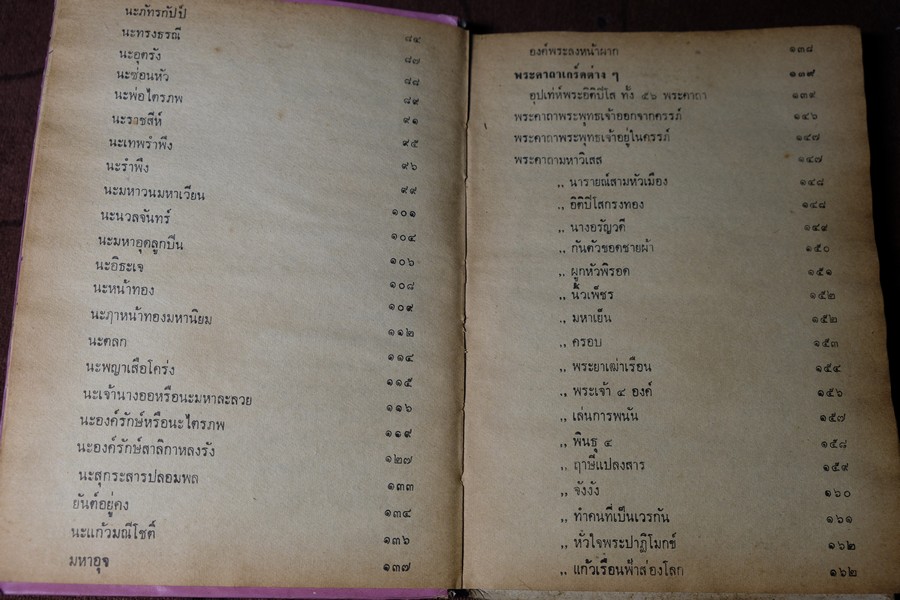 นะภัทรกัปป์ ๘๔
นะทรงธรณี ๘๗
นะอุตรัง ๘๘
นะซ่อนหัว ๘๙
นะพ่อไตรภพ ๙๑
นะราชสีห์ ๙๕
นะเทพรำพึง ๙๖
นะรำพึง ๙๙
นะมหาวนมหาเวียน ๑๐๑
นะนวลจันทร์ ๑๐๔
นะมหาอุดลูกปืน ๑๐๖
นะอิธะเจ ๑๐๘
นะหน้าทอง ๑๐๙
นะฦาหน้าทองมหานิยม ๑๑๒
นะตลก ๑๑๔
นะพญาเสือโคร่ง ๑๑๕
นะเจ้านางออหรือนะมหาละลวย ๑๑๖
นะองค์รักษ์หรือนะไตรภพ ๑๑๙
นะองค์รักษ์สาลิกาหลงรัง ๑๒๗
นะสุกระสารปลอมพล ๑๓๓
ยันต์อยู่คง ๑๓๔
นะแก้วมณีโชติ์ ๑๓๖
มหาอุจ ๑๓๗
องค์พระลงหน้าผาก ๑๓๘
พระคาถาเกร็ดต่าง ๆ ๑๓๙
อุปเท่ห์พระอิติปิโส ทั้ง ๕๖ พระคาถา ๑๓๙
พระคาถาพระพุทธเจ้าออกจากครรภ์ ๑๔๖
พระคาถาพระพุทธเจ้าอยู่ในครรภ์ ๑๔๗
พระคาถามหาวิเสส ๑๔๗
,, นารายณ์สามหัวเมือง ๑๔๘
,, อิติปิโสกรงทอง ๑๔๘
,, นางอรัญวดี ๑๔๙
,, กันตัวขอดชายผ้า ๑๕๐
,, ผูกหัวพิรอด ๑๕๑
,, นิ้วเพ็ชร ๑๕๒
,, มหาเย็น ๑๕๒
,, ครอบ ๑๕๓
,, พระยาเฒ่าเรือน ๑๕๔
,, พระเจ้า ๔ องค์ ๑๕๖
,, เล่นการพนัน ๑๕๗
,, พินธุ ๔ ๑๕๘
,, ฤาษีแปลงสาร ๑๕๙
,, จังงัง ๑๖๐
,, ทำคนที่เป็นเวรกัน ๑๖๑
,, หัวใจพระปาฏิโมกข์ ๑๖๒
,, แก้วเรือนฟ้าส่องโลก ๑๖๒